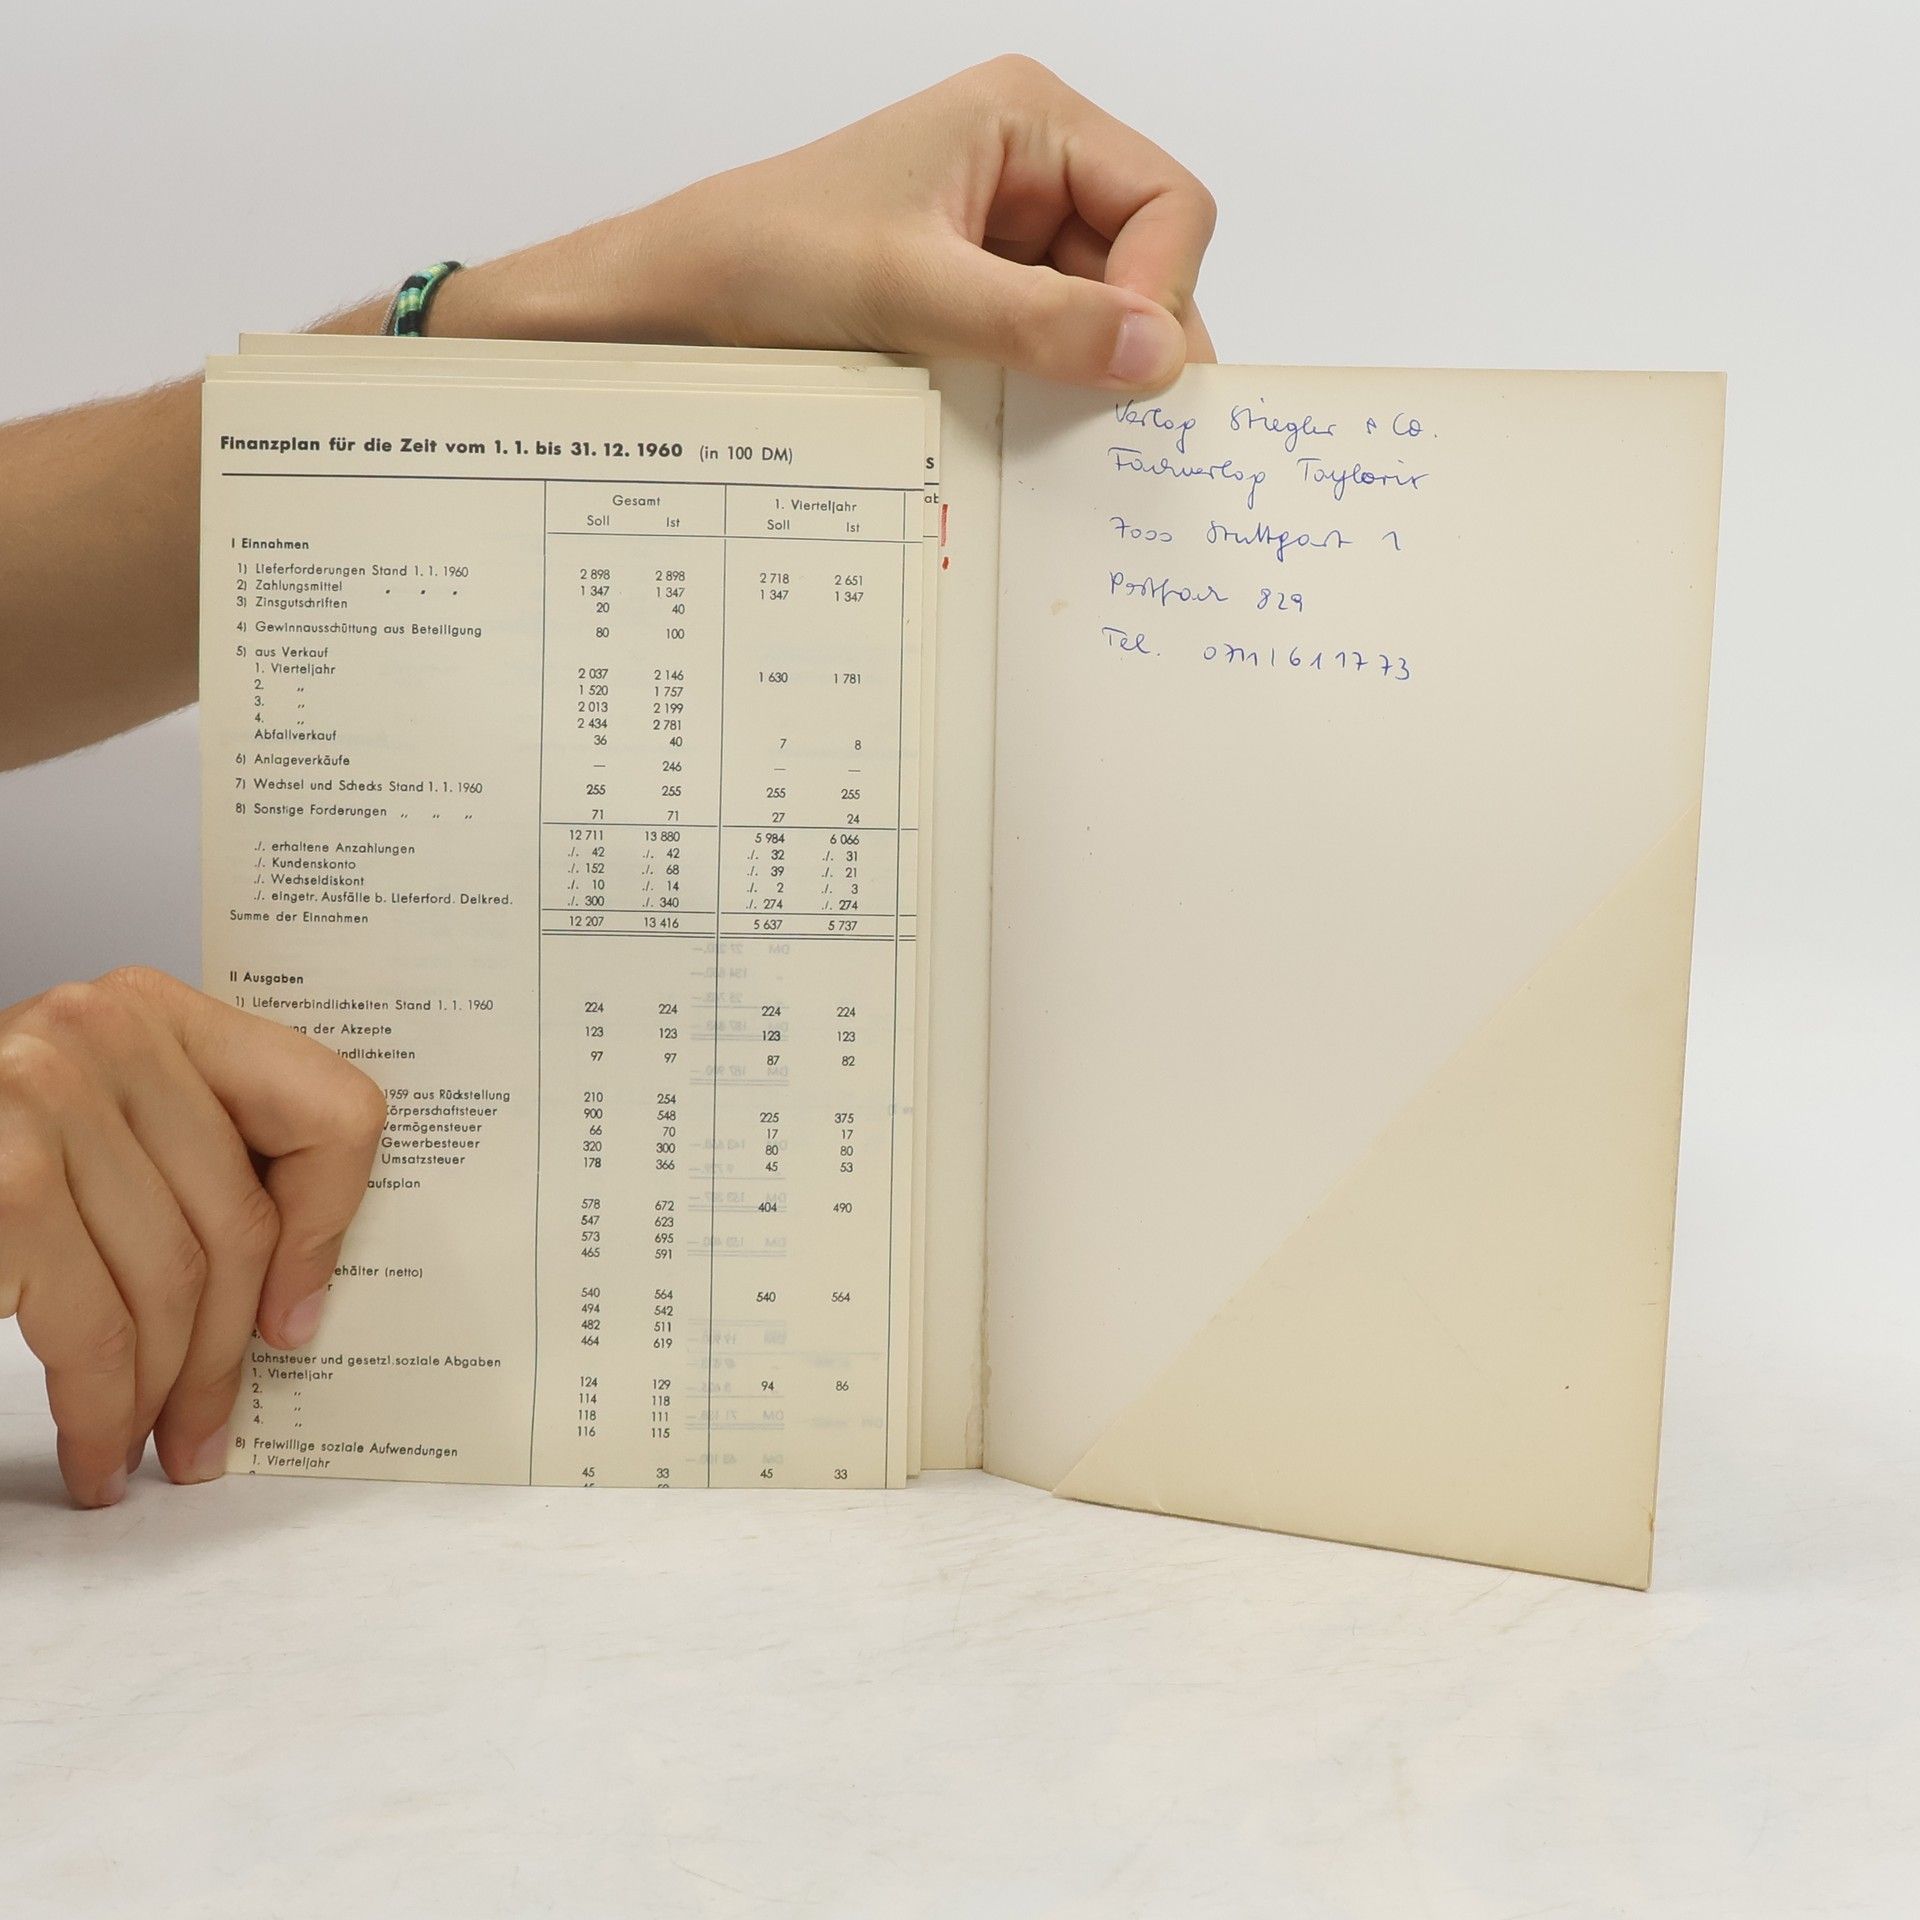 Finanzplan für die Zeit vom 1. 1. bis 31. 12. 1960 (in 100 DM)
Gesamt 1. Vierteljahr
Soll Ist Soll Ist
I Einnahmen
1) Lieferforderungen Stand 1. 1. 1960 2 898 2 898 2 718 2 651
2) Zahlungsmittel „ „ „ 1 347 1 347 1 347 1 347
3) Zinsgutschriften 20 40
4) Gewinnausschüttung aus Beteiligung 80 100
5) aus Verkauf
1. Vierteljahr 2 037 2 146 1 630 1 781
2. „ 1 520 1 757
3. „ 2 013 2 199
4. „ 2 434 2 781
Abfallverkauf 36 40 7 8
6) Anlageverkäufe — 246 — —
7) Wechsel und Schecks Stand 1. 1. 1960 255 255 255 255
8) Sonstige Forderungen „ „ „ 71 71 27 24
12 711 13 880 5 984 6 066
./. erhaltene Anzahlungen ./. 42 ./. 42 ./. 32 ./. 31
./. Kundenskonto ./. 152 ./. 68 ./. 39 ./. 21
./. Wechseldiskont ./. 10 ./. 14 ./. 2 ./. 3
./. eingetr. Ausfälle b. Lieferford. Delkred. ./. 300 ./. 340 ./. 274 ./. 274
Summe der Einnahmen 12 207 13 416 5 637 5 737
II Ausgaben
1) Lieferverbindlichkeiten Stand 1. 1. 1960 224 224 224 224
der Akzepte 123 123 123 123
indlichkeiten 97 97 87 82
1959 aus Rückstellung 210 254
Körperschaftsteuer 900 548 225 375
Vermögensteuer 66 70 17 17
Gewerbesteuer 320 300 80 80
Umsatzsteuer 178 366 45 53
aufsplan
578 672 404 490
547 623
573 695
465 591
ehälter (netto)
r 540 564 540 564
494 542
482 511
4. 464 619
Lohnsteuer und gesetzl. soziale Abgaben
1. Vierteljahr 124 129 94 86
2. „ 114 118
3. „ 118 111
4. „ 116 115
8) Freiwillige soziale Aufwendungen
1. Vierteljahr 45 33 45 33
s
ab
Verlag Stiegler & Co.
Fachverlag Taylorix
7000 Stuttgart 1
Postfach 829
Tel. 0711 / 61 17 73